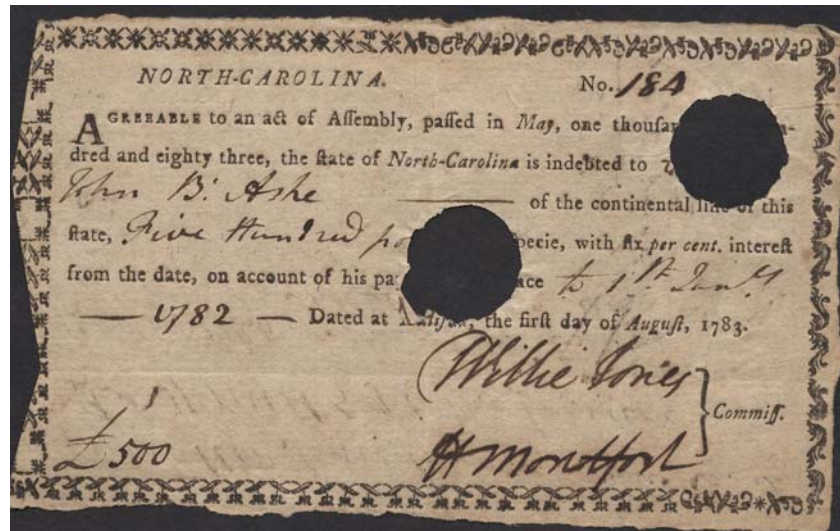 NORTH-CAROLINA. No. 184
AGREEABLE to an act of Aſſembly, paſſed in May, one
dred and eighty three, the ſtate of North-Carolina is indebted to
John B. Ashe of the continental line of this
ſtate, Five Hundred with ſix per cent. intereſt
from the date, on account of his to 1st Jany
— 1782 — Dated at the firſt day of Auguſt, 1783.
Willie Jones
Commiſſ.
£500
H Montfort